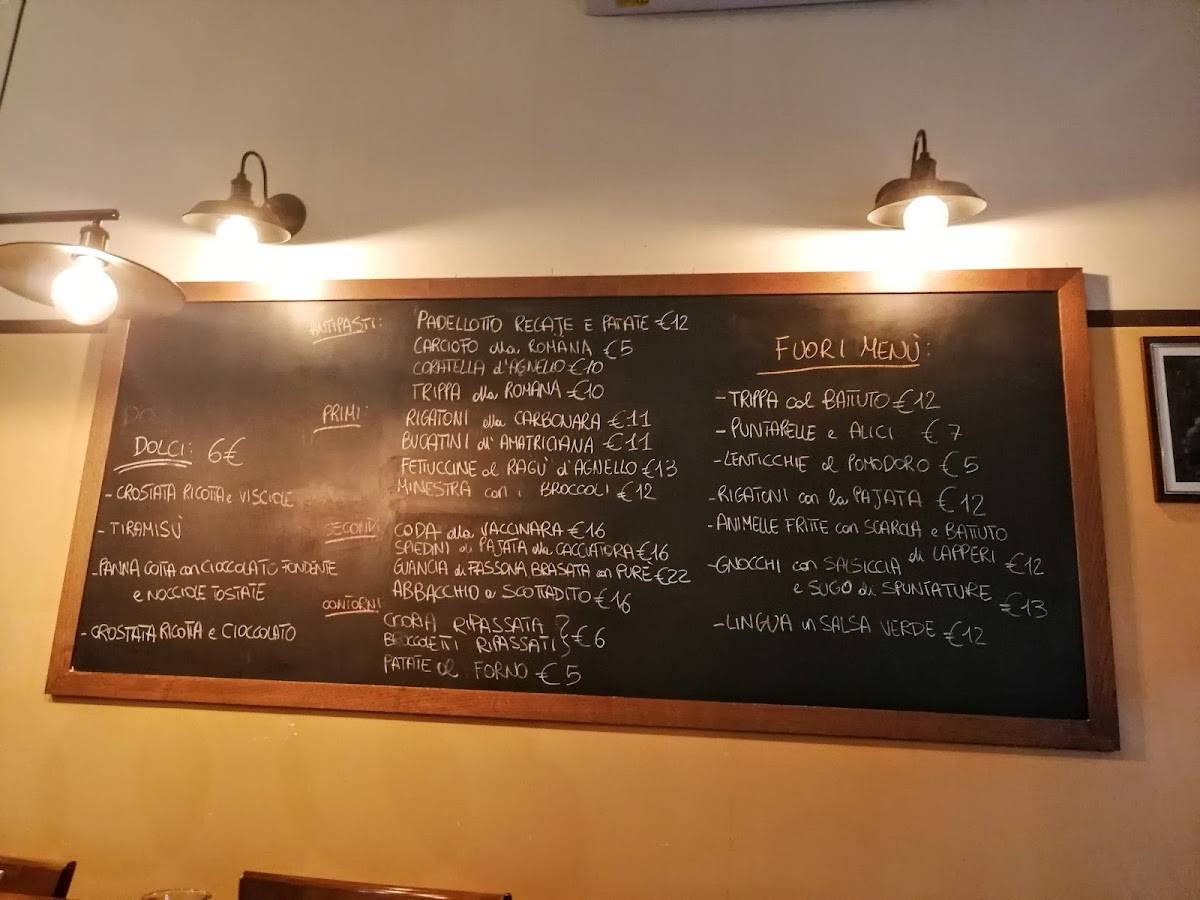 DOLCI: 6€
- CROSTATA RICOTTA e VISCIOLE
- TIRAMISÙ
- PANNA COTTA con CIOCCOLATO FONDENTE
e NOCCIOLE TOSTATE
- CROSTATA RICOTTA e CIOCCOLATO
ANTIPASTI:
PADELLOTTO REGAJE E PATATE €12
CARCIOFO alla ROMANA €5
CORATELLA d'AGNELLO €10
TRIPPA alla ROMANA €10
PRIMI:
RIGATONI alla CARBONARA €11
BUCATINI all'AMATRICIANA €11
FETTUCCINE al RAGÙ d'AGNELLO €13
MINESTRA con i BROCCOLI €12
SECONDI
CODA alla VACCINARA €16
SPIEDINI di PAJATA alla CACCIATORA €16
GUANCIA di FASSONA BRASATA con PURÈ €22
ABBACCHIO a SCOTTADITO €16
CONTORNI
CICORIA RIPASSATA
BROCCOLETTI RIPASSATI } €6
PATATE al FORNO €5
FUORI MENÙ:
- TRIPPA col BATTUTO €12
- PUNTARELLE e ALICI €7
- LENTICCHIE al POMODORO €5
- RIGATONI con la PAJATA €12
- ANIMELLE FRITTE con SCAROLA e BATTUTO
di CAPPERI €12
- GNOCCHI con SALSICCIA
e SUGO di SPUNTATURE €13
- LINGUA in SALSA VERDE €12